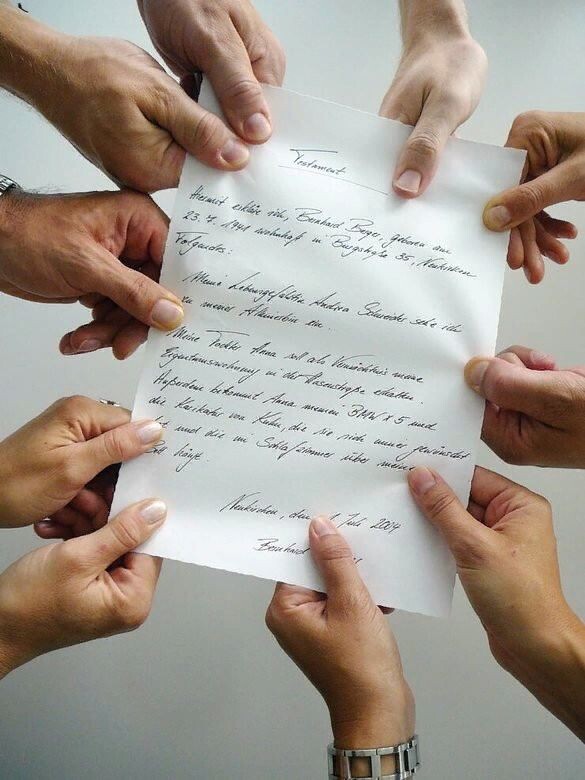 Testament
Hiermit erkläre ich, Bernhard Beyer, geboren am
23. 7. 1941 wohnhaft in Burgstraße 35, Neukirchen
Folgendes:
Meine Lebensgefährtin Andrea Schneider setze ich
zu meiner Alleinerbin ein.
Meine Tochter Anna soll als Vermächtnis meine
Eigentumswohnung in der Rosenstraße erhalten.
Außerdem bekommt Anna meinen BMW X5 und
die Karikatur von Kuhn, die sie sich immer gewünscht
hat und die im Schlafzimmer über meinem
Bett hängt.
Neukirchen, den Juli 2004
Bernhard